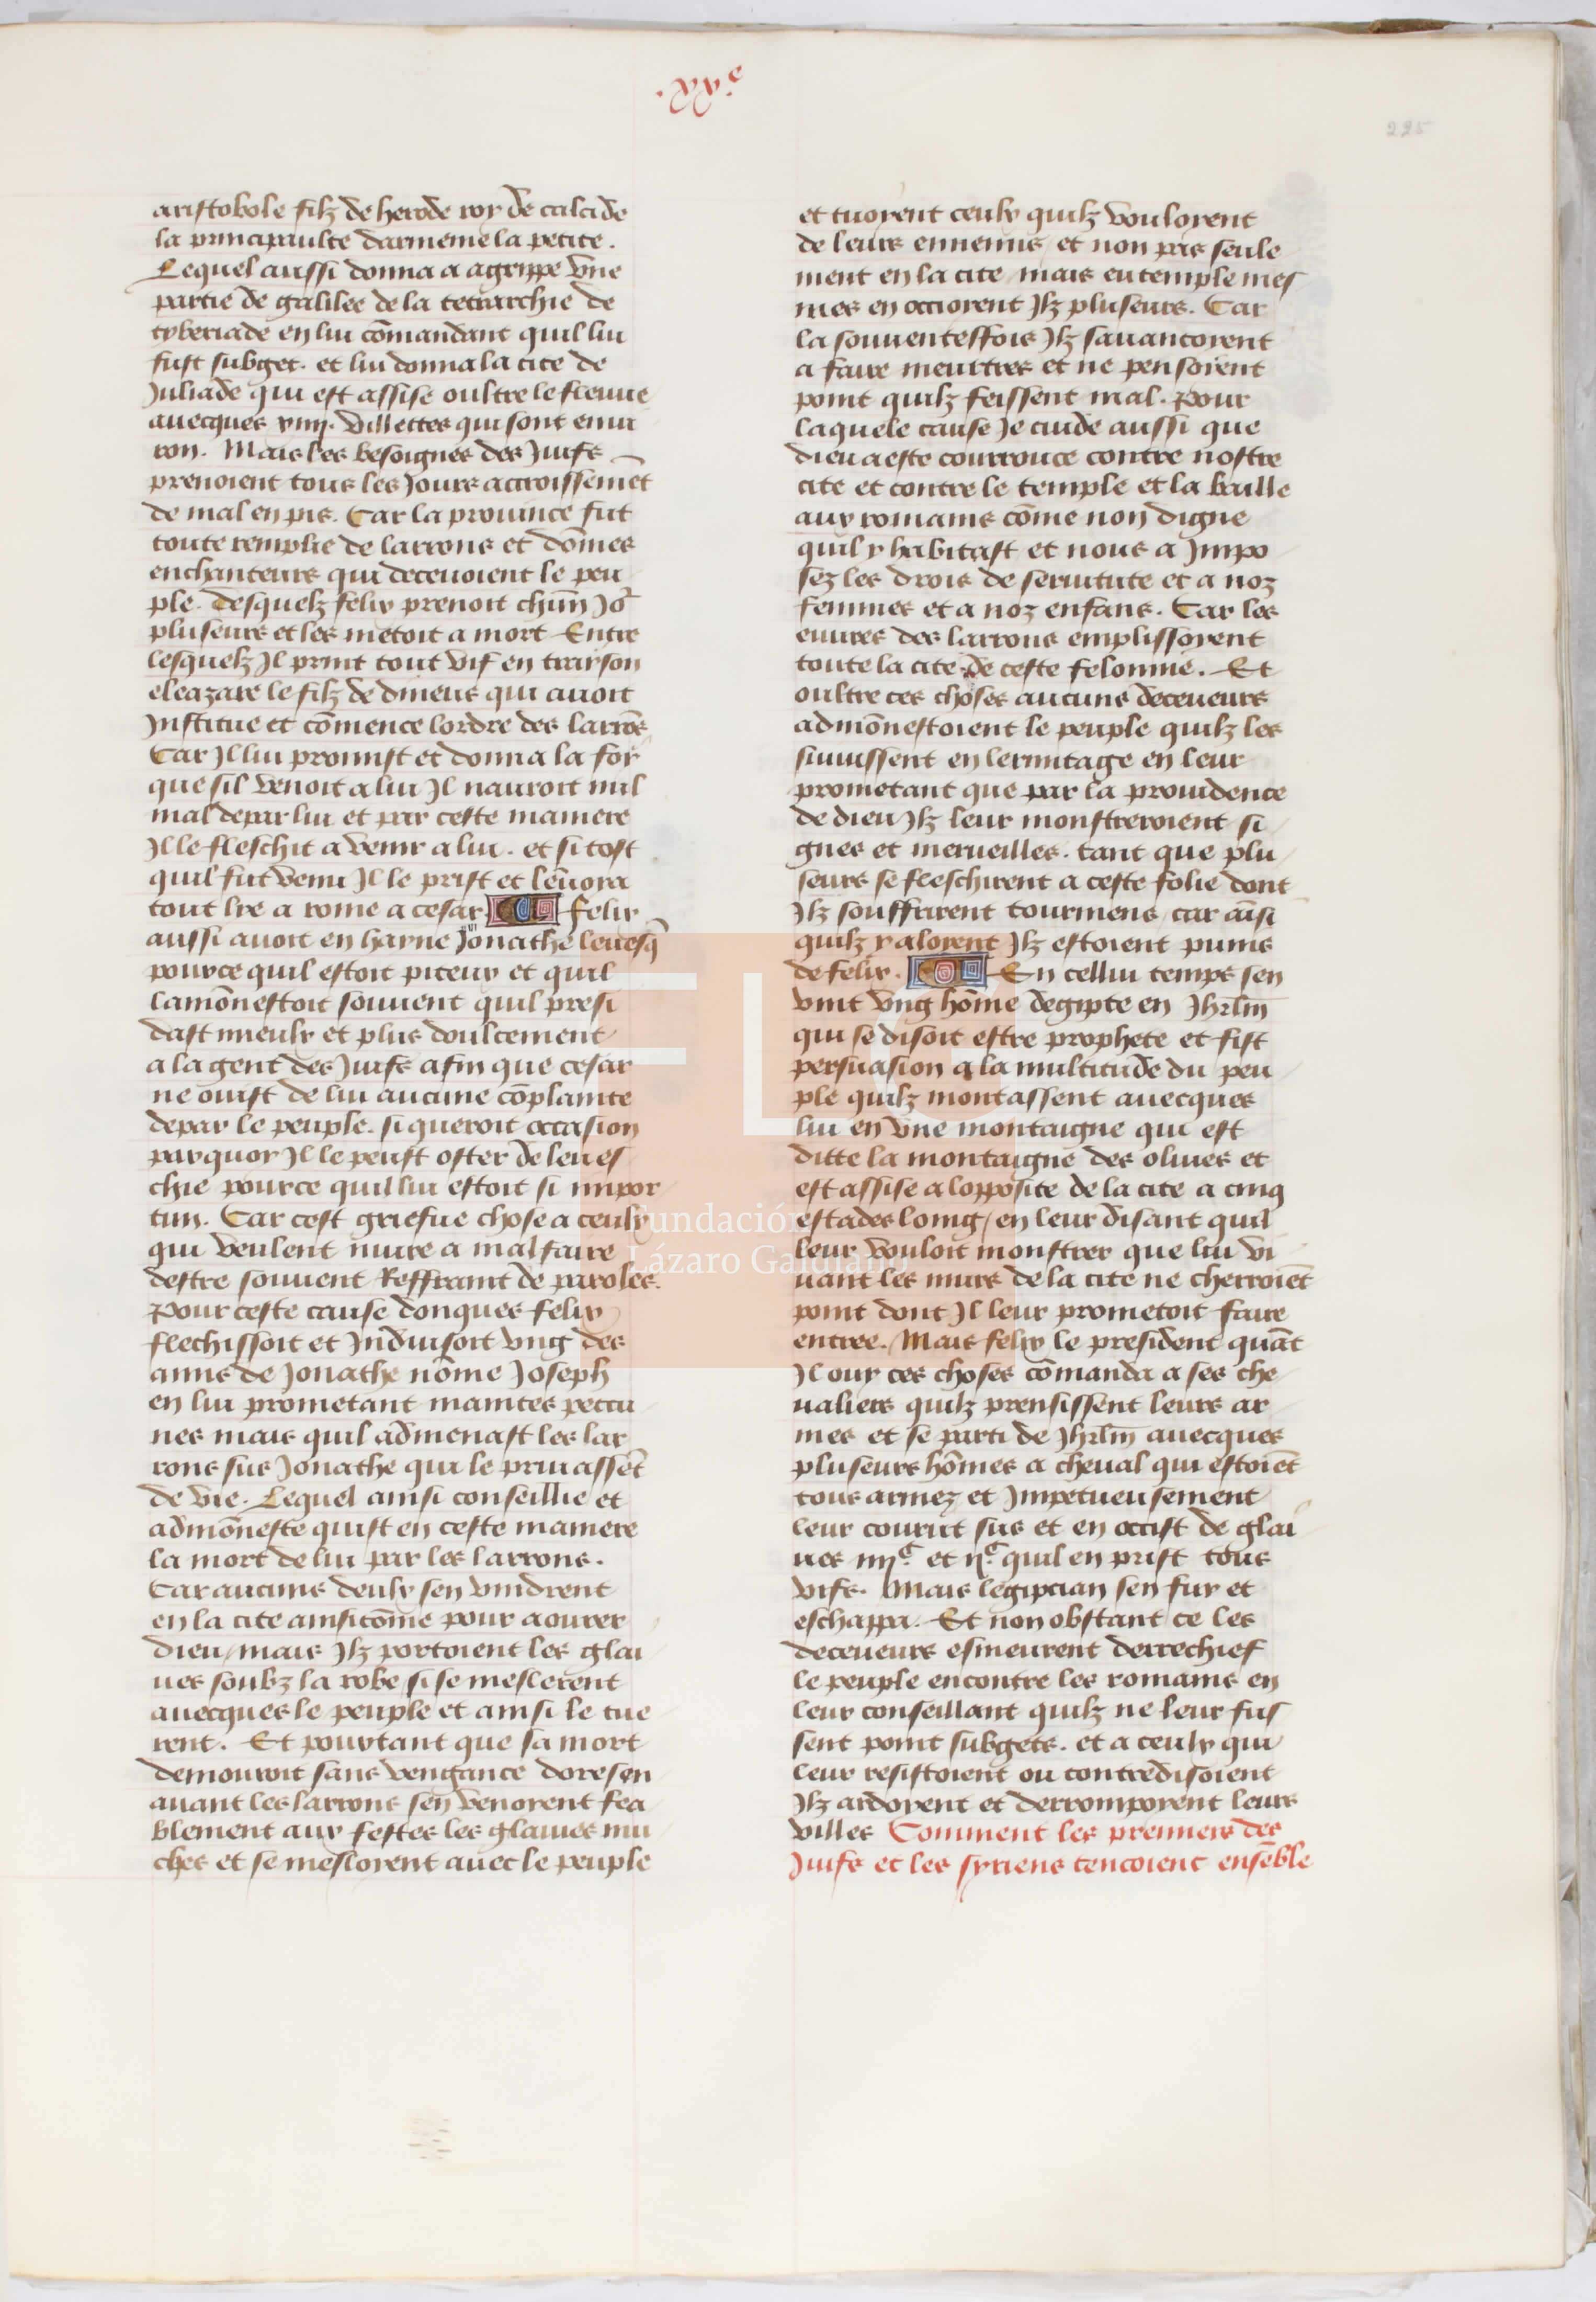 .xx.e
225
aristobole filz de herode roy de calcide
la principaulte darmenie la petite.
Lequel aussi donna a agrippe vne
partie de galilee de la tetrarchie de
tyberiade en lui cōmandant quil lui
fust subget. et lui donna la cite de
Juliade qui est assise oultre le fleuue
auecques xiiij. villettes qui sont enui
ron. Mais les besoignes des Juifs
prenoient tous les Jours accroissemēt
de mal en pis. Car la prouince fut
toute remplie de larrons et dōmes
enchanteurs qui deceuoient le peu
ple. desquelz felix prenoit chūn Jor
pluseurs et les metoit a mort Entre
lesquelz Il print tout vif en trayson
eleazare le filz de dineus qui auoit
Institue et cōmence lordre des larrōs
Car Il lui promist et donna la foy
que sil venoit a lui Il nauroit nul
mal depar lui et par ceste maniere
Il le fleschit a venir a lui. et si tost
quil fut venu Il le prist et lēuoia
tout lie a rome a cesar. felix
aussi auoit en hayne Jonathe leuesq̄
pource quil estoit piteux et quil
lamōnestoit souuent quil presi
dast mieulx et plus doulcement
a la gent des Juifs afin que cesar
ne ouist de lui aucune cōplainte
depar le peuple. si queroit occasion
parquoy Il le peust oster de leues
chie pource quil lui estoit si impor
tun. Car cest griefue chose a ceulx
qui veulent nuire a mal faire
destre souuent Reffraint de paroles.
Pour ceste cause donques felix
flechissoit et Induisoit vng des
amis de Jonathe nōme Joseph
en lui prometant maintes peccu
nes mais quil admenast les lar
rons sus Jonathe qui le priuassēt
de vie. Lequel ainsi conseillie et
admōneste quist en ceste maniere
la mort de lui par les larrons.
Car aucuns deulx sen vindrent
en la cite ainsi cōme pour aourer
dieu / mais Ilz portoient les glai
ues soubz la robe / si se meslerent
auecques le peuple et ainsi le tue
rent. Et pourtant que sa mort
demouroit sans vengance doresen
auant les larrons sen venoient fea
blement aux festes les glaiues mu
ches et se mesloient auec le peuple
et tuoient ceulx quilz vouloient
de leurs ennemis / et non pas seule
ment en la cite / mais eu temple mes
mes en occioient Ilz pluseurs. Car
la souuenteffois Ilz sauancoient
a faire meurtres et ne pensoient
point quilz feissent mal. Pour
laquele cause Je cuide aussi que
dieu a este courrouce contre nostre
cite et contre le temple et la baille
aux romains cōme non digne
quil y habitast et nous a Impo
sez les drois de seruitute et a noz
femmes et a noz enfans. Car les
euures des larrons emplissoient
toute la cite de ceste felonnie. Et
oultre ces choses aucuns deceueurs
admōnestoient le peuple quilz les
siuuissent en lermitage en leur
prometant que par la prouidence
de dieu Ilz leur monstreroient si
gnes et merueilles. tant que plu
seurs se fleschirent a ceste folie dont
Ilz souffrirent tourmens / car aīsi
quilz y aloient Ilz estoient punis
de felix. En cellui temps sen
vint vng hōme degipte en Jhrl̄m
qui se disoit estre prophete et fist
persuasion a la multitude du peu
ple quilz montassent auecques
lui en vne montaigne qui est
ditte la montaigne des oliues et
est assise a lopposite de la cite a cinq
estades loing / en leur disant quil
leur vouloit monstrer que lui vi
uant les murs de la cite ne cherroiēt
point dont Il leur prometoit faire
entree. Mais felix le president quāt
Il ouy ces choses cōmanda a ses che
ualiers quilz prensissent leurs ar
mes et se parti de Jhrl̄m auecques
pluseurs hōmes a cheual qui estoiēt
tous armez et Impetueusement
leur courut sus et en occist de glai
ues iiijc. et ijc. quil en prist tous
vifs. Mais legipcian sen fuy et
eschappa. Et non obstant ce les
deceueurs esmeurent derrechief
le peuple encontre les romains en
leur conseillant quilz ne leur fus
sent point subgets. et a ceulx qui
leur resistoient ou contredisoient
Ilz ardoient et derrompoient leurs
villes Comment les premiers des
Juifs et les syriens tencoient ensēble
FLG
Fundación
Lázaro Galdiano